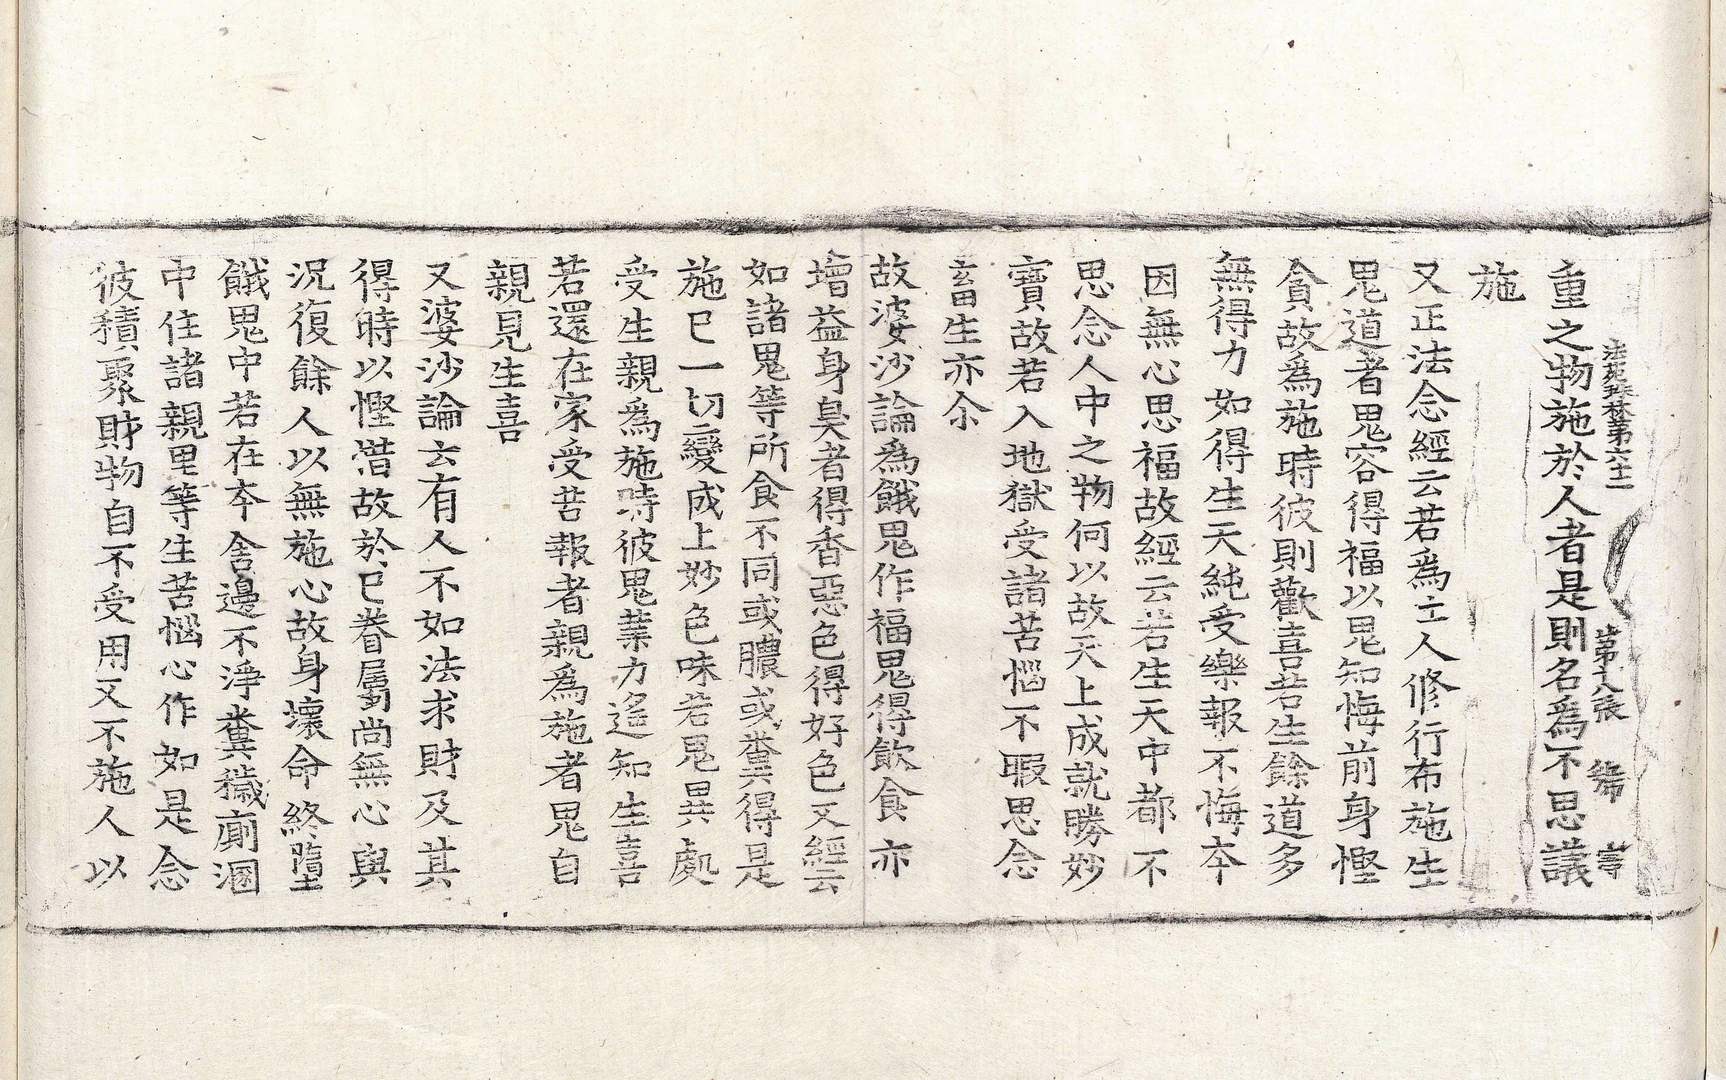 法苑珠林第六十二 第十八張 㢧 䓁
重之物施於人者是則名爲不思議
施
又正法念經云若爲亡人修行布施生
鬼道者鬼容得福以鬼知悔前身慳
貪故爲施時彼則歡喜若生餘道多
無得力如得生天純受樂報不悔夲
因無心思福故經云若生天中都不
思念人中之物何以故天上成就勝妙
寶故若入地獄受諸苦惱不暇思念
畜生亦尒
故婆沙論爲餓鬼作福鬼得飲食亦
增益身臭者得香惡色得好色又經云
如諸鬼等所食不同或膿或糞得是
施已一切變成上妙色味若鬼異處
受生親爲施時彼鬼業力遙知生喜
若還在家受苦報者親爲施者鬼自
親見生喜
又婆沙論云有人不如法求財及其
得時以慳惜故於已眷屬尚無心與
況復餘人以無施心故身壞命終墮
餓鬼中若在夲舍邊不淨糞穢廁溷
中住諸親里等生苦惱心作如是念
彼積聚財物自不受用又不施人以